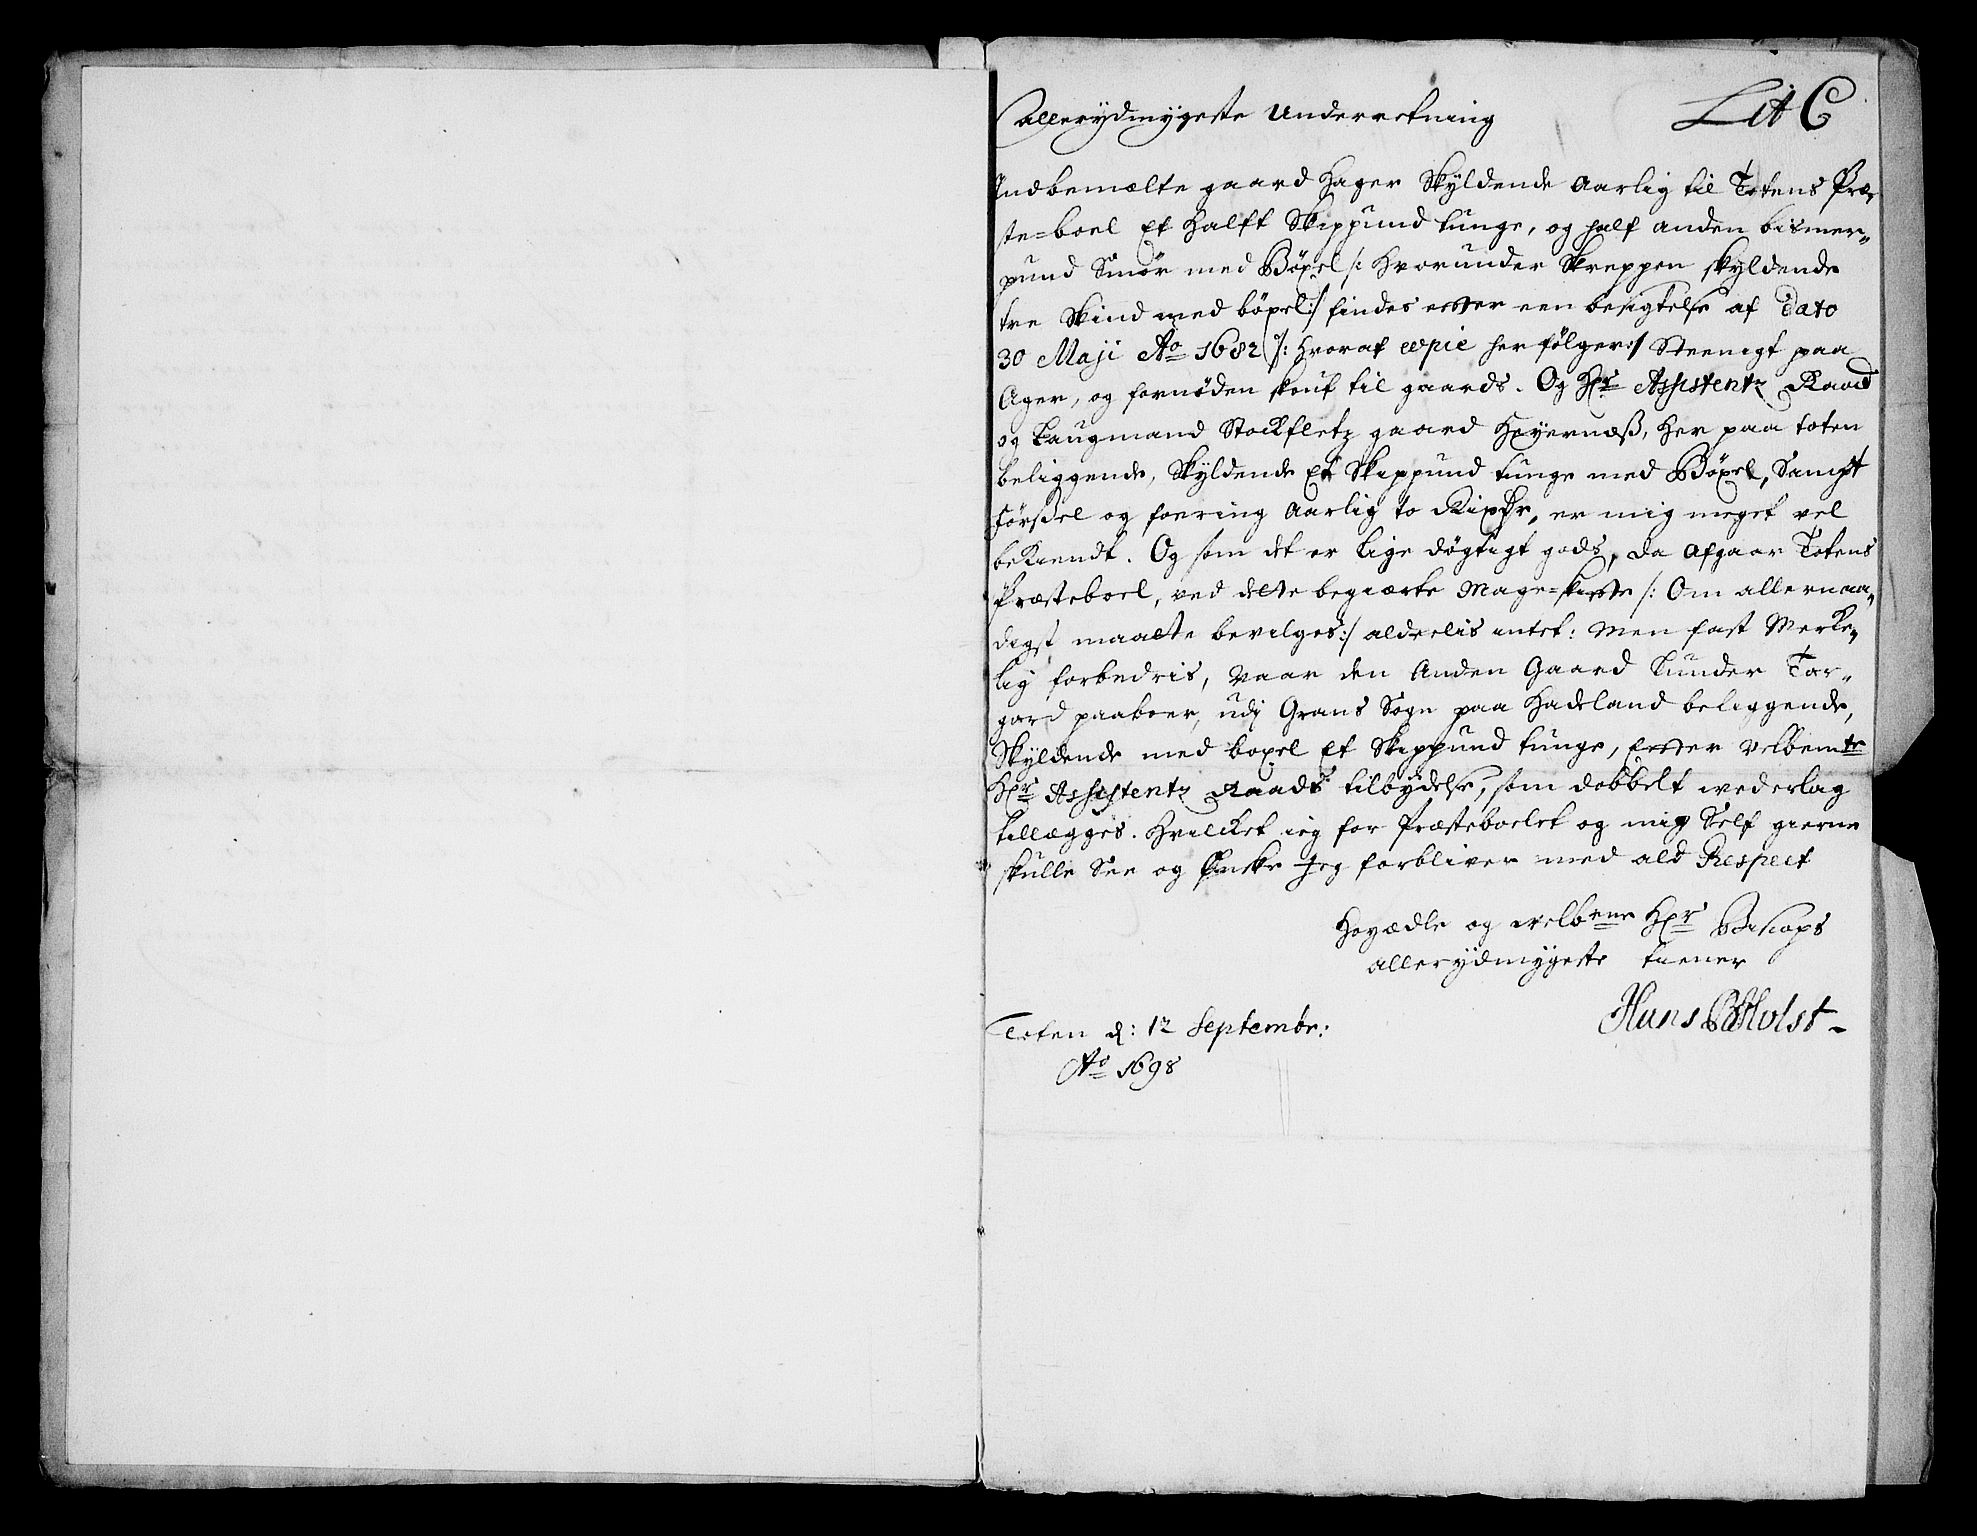 Lit C
allerydmygeste Underretning
Indbemælte gaard Hager Skyldende Aarlig til Totens Præ,
ste=boel Et halft Skippund tunge, og half anden bismer„
pund Smør med Böxel /: hvorunder Skreppen skyldende
tre Skind med böxel :/ findes effter een besigtelse af Dato
30 Maji Ao 1682 /: hvoraf copie her følger :/ Steenigt paa
Ager, og fornöden skouf til gaards. Og Hr Assistentz Raad
og Laugmand Stockfletz gaard Höyernæß, her paa toten
beliggende, Skyldende Et Skippund tunge med Böxel, Sampt
förssel og foering Aarlig to Rixdr, er mig meget vel
bekiendt. Og som det er lige dögtigt gods, da Afgaar Totens
Præsteboel, ved dette begiærte Mage=skiffte /: Om allernaa„
digst maatte bevilges :/ aldeelis intet: Men fast Merke„
lig forbedris, Naar den Anden Gaard Lunder Tor„
gard paaboer, udj Grans Sogn paa Hadeland beliggende,
Skyldende med boxel Et Skippund tunge, Effter velbemte
Hr Assistentz Raads tilbydelse, som dobbelt vederlag
tillegges. Hvilcket ieg for Præsteboelet og mig Self gierne
skulle See og Önske Jeg forbliver med ald Respect
Höyædle og velbrne Hr Biscops
allerydmygeste tiener
Hans Holst
Toten d: 12 Septembr:
Ao 1698